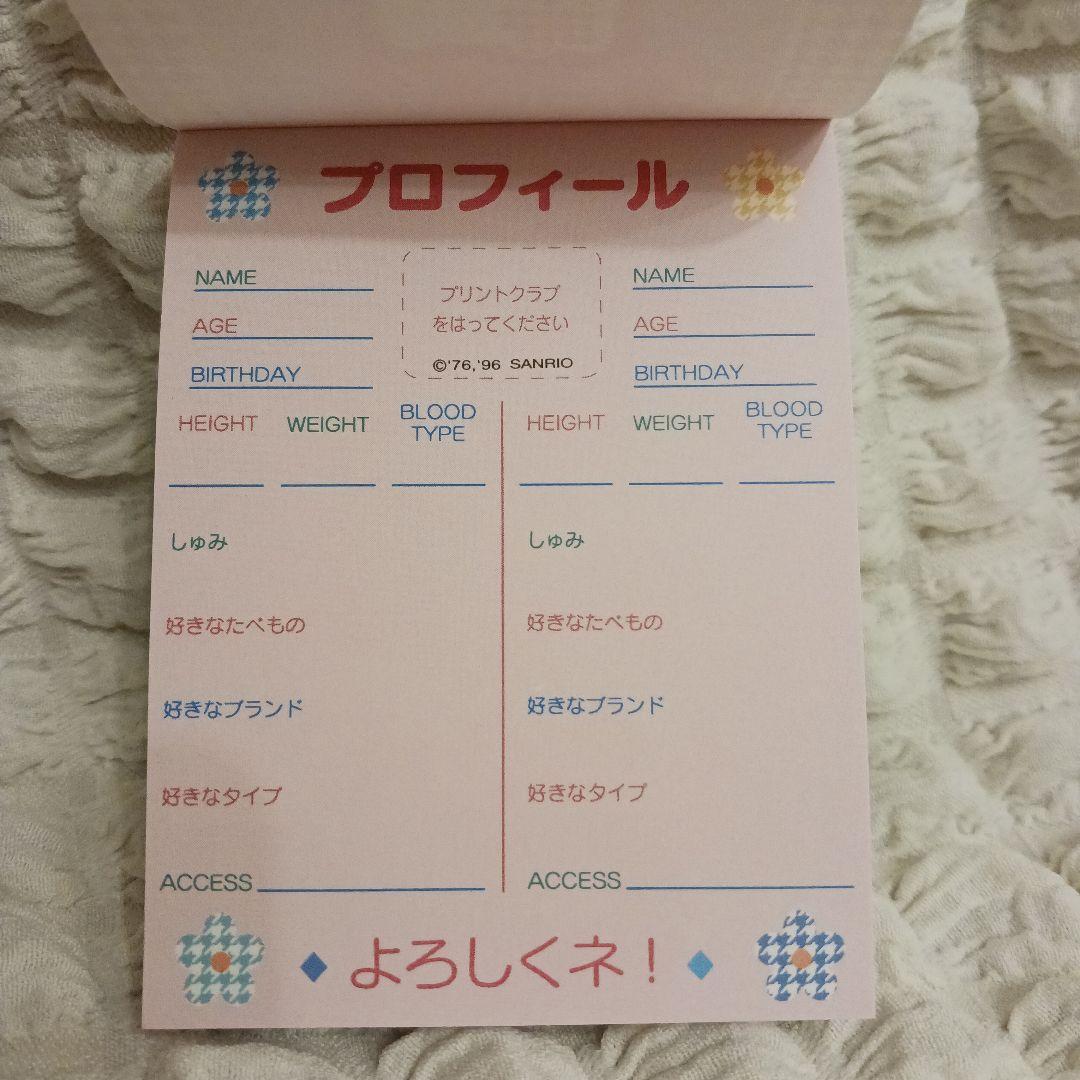 プロフィール
NAME
AGE
BIRTHDAY
プリントクラブ
をはってください
©'76,'96 SANRIO
NAME
AGE
BIRTHDAY
HEIGHT WEIGHT BLOOD TYPE
しゅみ
好きなたべもの
好きなブランド
好きなタイプ
ACCESS
HEIGHT WEIGHT BLOOD TYPE
しゅみ
好きなたべもの
好きなブランド
好きなタイプ
ACCESS
よろしくネ!